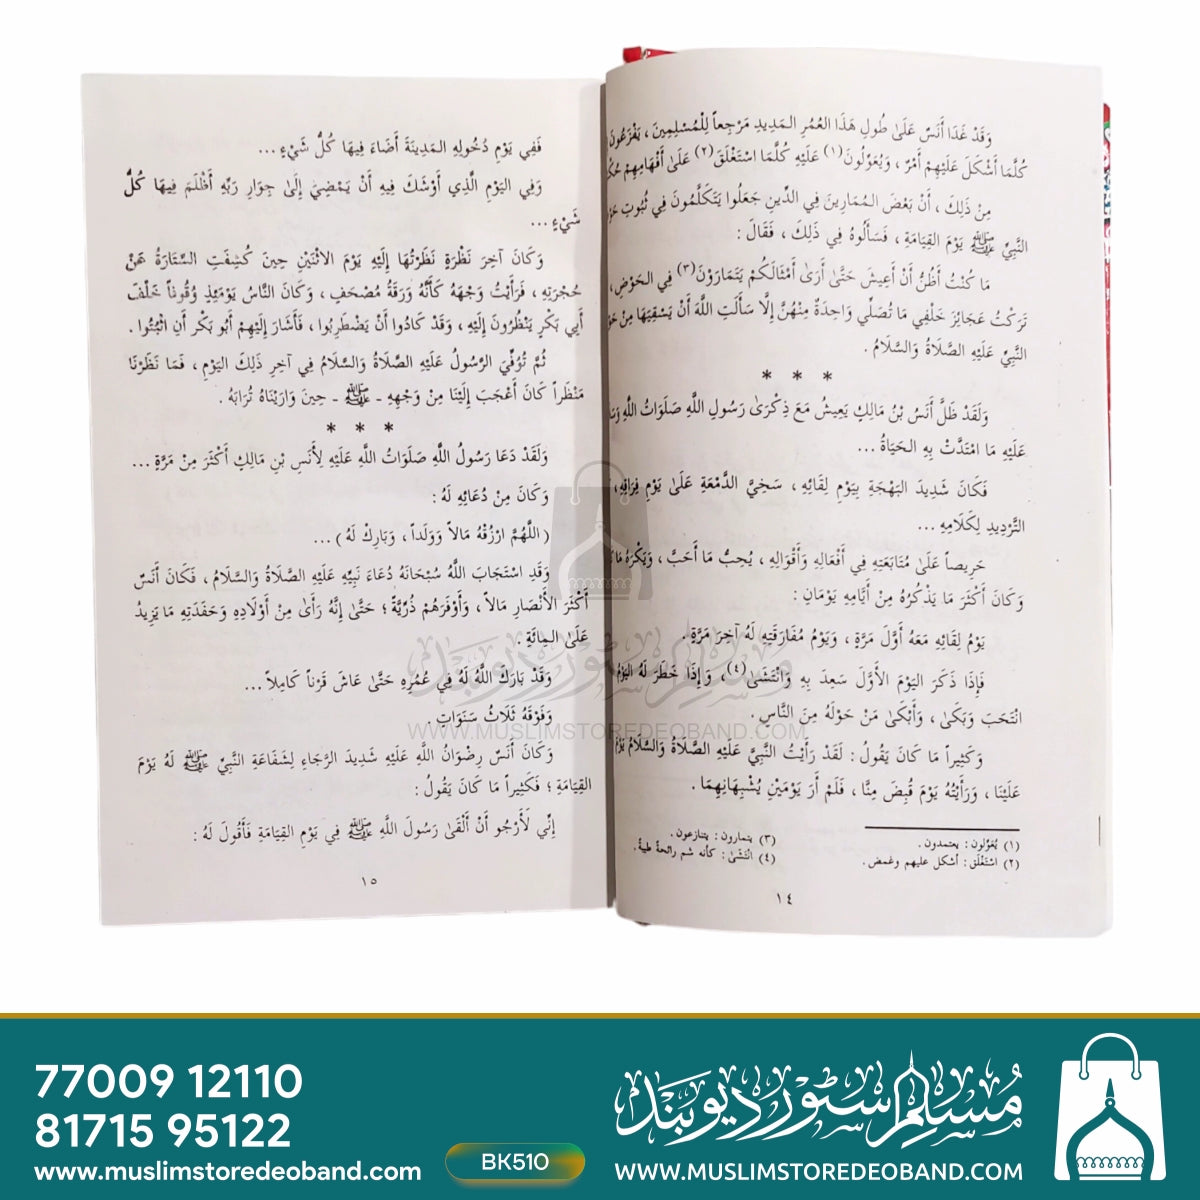 وَقَدْ غَدَا أَنَسٌ عَلَىٰ طُولِ هَذَا العُمُرِ المَدِيدِ مَرْجِعاً لِلْمُسْلِمِينَ ، يَفْزَعُونَ
كُلَّمَا أَشْكَلَ عَلَيْهِمْ أَمْرٌ ، وَيُعَوِّلُونَ(١) عَلَيْهِ كُلَّمَا اسْتَغْلَقَ(٢) عَلَىٰ أَفْهَامِهِمْ
مِنْ ذَلِكَ ، أَنَّ بَعْضَ المُمَارِينَ فِي الدِّينِ جَعَلُوا يَتَكَلَّمُونَ فِي ثُبُوتِ
النَّبِيِّ ﷺ يَوْمَ القِيَامَةِ ، فَسَأَلُوهُ فِي ذَلِكَ ، فَقَالَ :
مَا كُنْتُ أَظُنُّ أَنْ أَعِيشَ حَتَّىٰ أَرَىٰ أَمْثَالَكُمْ يَتَمَارَوْنَ(٣) فِي الحَوْضِ ،
تَرَكْتُ عَجَائِزَ خَلْفِي مَا تُصَلِّي وَاحِدَةٌ مِنْهُنَّ إِلَّا سَأَلَتِ اللَّهَ أَنْ يَسْقِيَهَا مِنْ
النَّبِيِّ عَلَيْهِ الصَّلَاةُ وَالسَّلَامُ .
* * *
وَلَقَدْ ظَلَّ أَنَسُ بْنُ مَالِكٍ يَعِيشُ مَعَ ذِكْرَىٰ رَسُولِ اللَّهِ صَلَوَاتُ اللَّهِ
عَلَيْهِ مَا امْتَدَّتْ بِهِ الحَيَاةُ ...
فَكَانَ شَدِيدَ البَهْجَةِ بِيَوْمِ لِقَائِهِ ، سَخِيَّ الدَّمْعَةِ عَلَىٰ يَوْمِ فِرَاقِهِ ،
التَّرْدِيدِ لِكَلَامِهِ ...
حَرِيصاً عَلَىٰ مُتَابَعَتِهِ فِي أَفْعَالِهِ وَأَقْوَالِهِ ، يُحِبُّ مَا أَحَبَّ ، وَيَكْرَهُ
وَكَانَ أَكْثَرَ مَا يَذْكُرُهُ مِنْ أَيَّامِهِ يَوْمَانِ :
يَوْمُ لِقَائِهِ مَعَهُ أَوَّلَ مَرَّةٍ ، وَيَوْمُ مُفَارَقَتِهِ لَهُ آخِرَ مَرَّةٍ .
فَإِذَا ذَكَرَ اليَوْمَ الأَوَّلَ سَعِدَ بِهِ وَانْتَشَىٰ(٤) ، وَإِذَا خَطَرَ لَهُ اليَوْمُ
انْتَحَبَ وَبَكَىٰ ، وَأَبْكَىٰ مَنْ حَوْلَهُ مِنَ النَّاسِ .
وَكَثِيراً مَا كَانَ يَقُولُ : لَقَدْ رَأَيْتُ النَّبِيَّ عَلَيْهِ الصَّلَاةُ وَالسَّلَامُ يَوْمَ
عَلَيْنَا ، وَرَأَيْتُهُ يَوْمَ قُبِضَ مِنَّا ، فَلَمْ أَرَ يَوْمَيْنِ يُشْبِهَانِهِمَا .
(١) يُعَوِّلون : يعتمدون .
(٢) اسْتَغْلَق : أشكل عليهم وغمض .
(٣) يتمارون : يتنازعون .
(٤) انْتَشَىٰ : كأنه شم رائحةً طيبةً .
١٤
فَفِي يَوْمِ دُخُولِهِ المَدِينَةَ أَضَاءَ فِيهَا كُلُّ شَيْءٍ ...
وَفِي اليَوْمِ الَّذِي أَوْشَكَ فِيهِ أَنْ يَمْضِيَ إِلَىٰ جِوَارِ رَبِّهِ أَظْلَمَ فِيهَا كُلُّ
شَيْءٍ ...
وَكَانَ آخِرَ نَظْرَةٍ نَظَرْتُهَا إِلَيْهِ يَوْمَ الاثْنَيْنِ حِينَ كُشِفَتِ السِّتَارَةُ عَنْ
حُجْرَتِهِ ، فَرَأَيْتُ وَجْهَهُ كَأَنَّهُ وَرَقَةُ مُصْحَفٍ ، وَكَانَ النَّاسُ يَوْمَئِذٍ وُقُوفاً خَلْفَ
أَبِي بَكْرٍ يَنْظُرُونَ إِلَيْهِ ، وَقَدْ كَادُوا أَنْ يَضْطَرِبُوا ، فَأَشَارَ إِلَيْهِمْ أَبُو بَكْرٍ أَنِ اثْبُتُوا .
ثُمَّ تُوُفِّيَ الرَّسُولُ عَلَيْهِ الصَّلَاةُ وَالسَّلَامُ فِي آخِرِ ذَلِكَ اليَوْمِ ، فَمَا نَظَرْنَا
مَنْظَراً كَانَ أَعْجَبَ إِلَيْنَا مِنْ وَجْهِهِ ـ ﷺ ـ حِينَ وَارَيْنَاهُ تُرَابَهُ .
* * *
وَلَقَدْ دَعَا رَسُولُ اللَّهِ صَلَوَاتُ اللَّهِ عَلَيْهِ لِأَنَسِ بْنِ مَالِكٍ أَكْثَرَ مِنْ مَرَّةٍ ...
وَكَانَ مِنْ دُعَائِهِ لَهُ :
( اللَّهُمَّ ارْزُقْهُ مَالاً وَوَلَداً ، وَبَارِكْ لَهُ ) ...
وَقَدِ اسْتَجَابَ اللَّهُ سُبْحَانَهُ دُعَاءَ نَبِيِّهِ عَلَيْهِ الصَّلَاةُ وَالسَّلَامُ ، فَكَانَ أَنَسٌ
أَكْثَرَ الأَنْصَارِ مَالاً ، وَأَوْفَرَهُمْ ذُرِّيَّةً ؛ حَتَّىٰ إِنَّهُ رَأَىٰ مِنْ أَوْلَادِهِ وَحَفَدَتِهِ مَا يَزِيدُ
عَلَىٰ المِائَةِ .
وَقَدْ بَارَكَ اللَّهُ لَهُ فِي عُمُرِهِ حَتَّىٰ عَاشَ قَرْناً كَامِلاً ...
وَفَوْقَهُ ثَلَاثُ سَنَوَاتٍ .
وَكَانَ أَنَسٌ رِضْوَانُ اللَّهِ عَلَيْهِ شَدِيدَ الرَّجَاءِ لِشَفَاعَةِ النَّبِيِّ ﷺ لَهُ يَوْمَ
القِيَامَةِ ؛ فَكَثِيراً مَا كَانَ يَقُولُ :
إِنِّي لَأَرْجُو أَنْ أَلْقَىٰ رَسُولَ اللَّهِ ﷺ فِي يَوْمِ القِيَامَةِ فَأَقُولَ لَهُ :
١٥
مسلم سٹور دیوبند
WWW.MUSLIMSTOREDEOBAND.COM
77009 12110
81715 95122
www.muslimstoredeoband.com
BK510
مسلم سٹور دیوبند
WWW.MUSLIMSTOREDEOBAND.COM